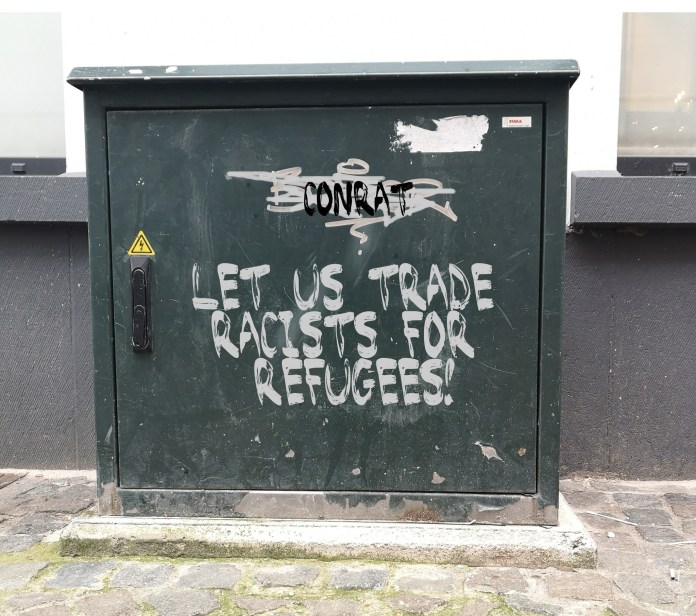 CONRAT
LET US TRADE
RACISTS FOR
REFUGEES!